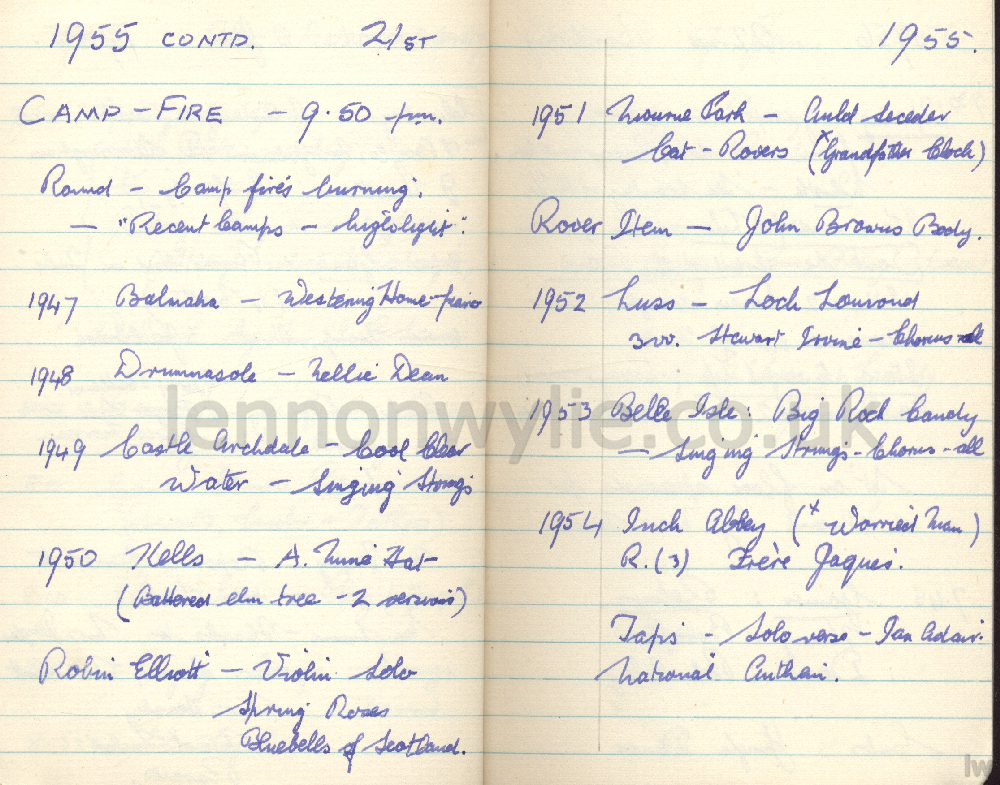 1955 CONTD. 21ST
CAMP-FIRE - 9.50 pm.
Round - Camp fire's burning.
- "Recent Camps - highlight".
1947 Balmaha - Westering Home - piano
1948 Drumnasole - Nellie Dean
1949 Castle Archdale - Cool Clear
Water - Singing Strings
1950 Kells - A. Hat
(Battered elm tree - 2 versions)
Robin Elliott - Violin Solo
Spring Roses
Bluebells of Scotland.
1955.
1951 Mourne Park - Auld Seceder
Cat - Rovers (x Grandfather Clock)
Rover Item - John Browns Body.
1952 Luss - Loch Lomond
3 vv. Stewart Irvine - Chorus all
1953 Belle Isle: Big Rock Candy
- Singing Strings - Chorus - all
1954 Inch Abbey (x Worried Man)
R. (3) Frère Jaques.
Taps - Solo verse - Ian Adair.
National Anthem.
lennonwylie.co.uk
lw